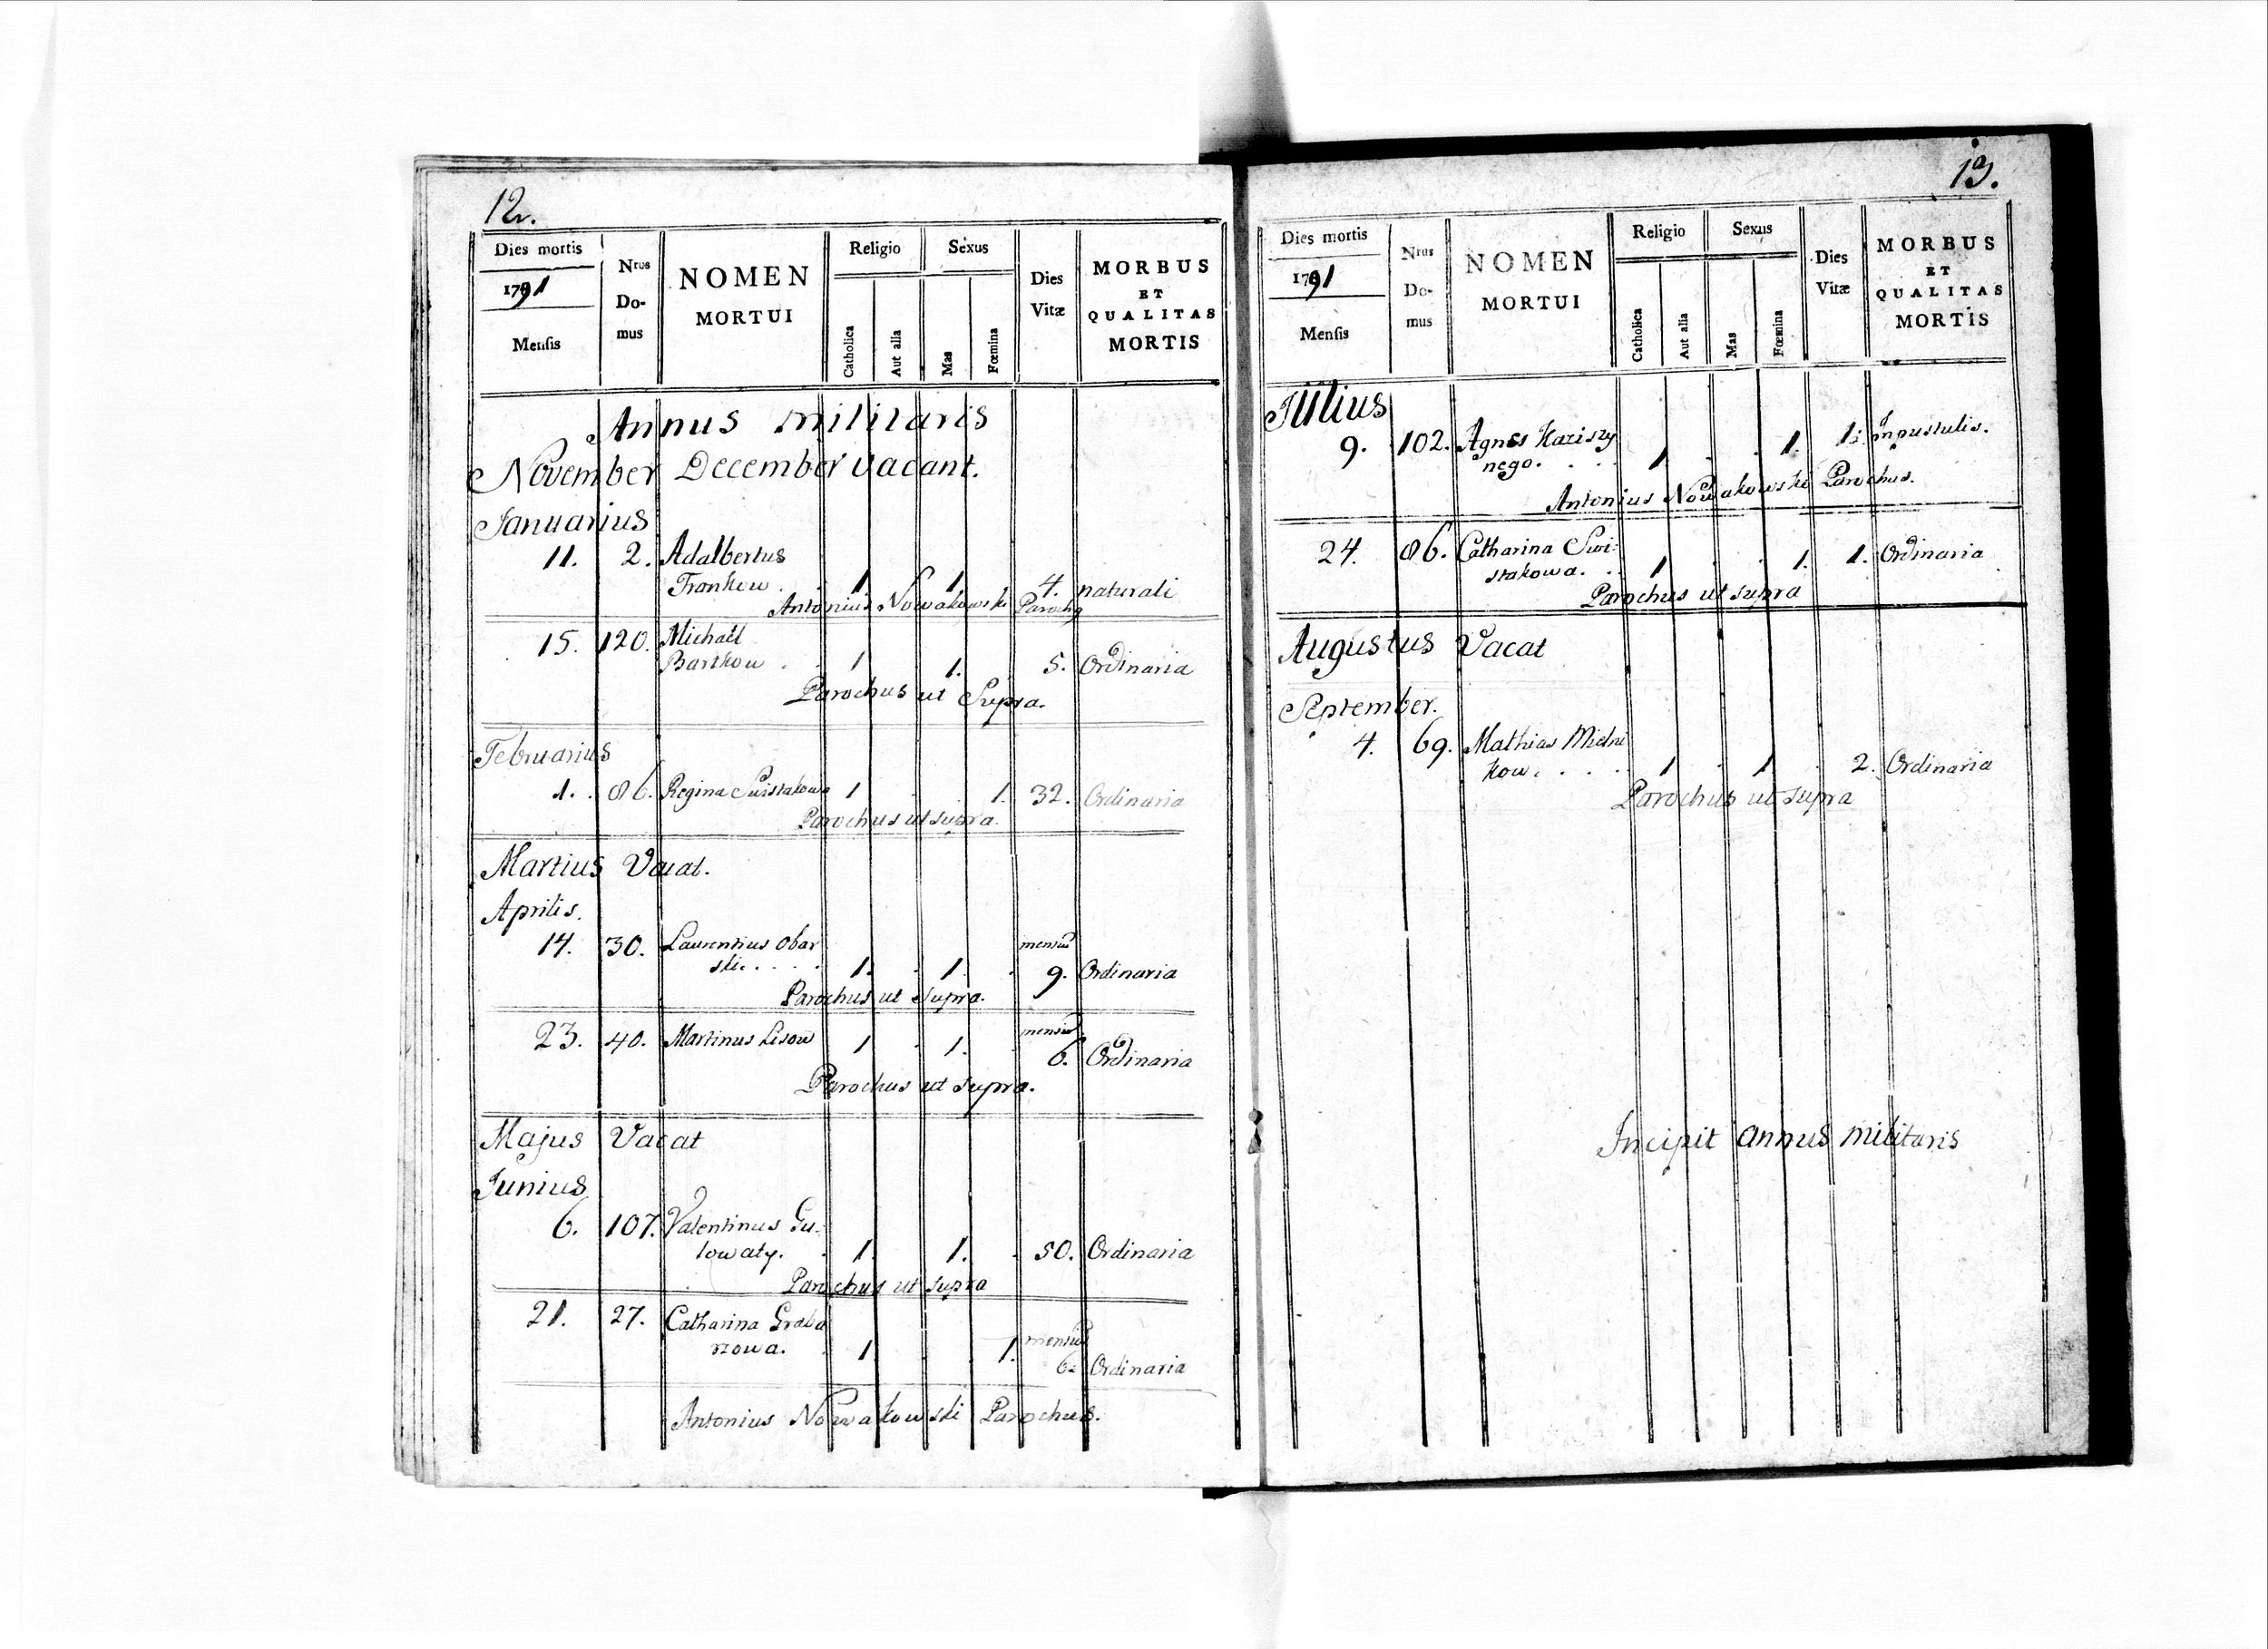 12.
Dies mortis
1791
Mensis
Nrus
Do-
mus
NOMEN
MORTUI
Religio
Catholica
Aut alia
Sexus
Mas
Fœmina
Dies
Vitæ
MORBUS
ET
QUALITAS
MORTIS
Annus militaris
November December vacant.
Januarius
11. 2. Adalbertus
Fronkow . . 1 1. 4. naturali
Antonius Nowakowski Parochq
15. 120. Michael
Bartkow . . 1 1. 5. Ordinaria
Parochus ut Supra.
Februarius
1. . 86. Regina Swistakowa 1 . 1. 32. Ordinaria
Parochus ut supra.
Martius Vacat.
Aprilis.
14. 30. Laurentius Obar mensiu
ski. . . . . 1. . 1. . 9. Ordinaria
Parochus ut supra.
23. 40. Martinus Lisow 1 . 1. . mensiu
6. Ordinaria
Parochus ut supra.
Majus Vacat
Junius
6. 107. Valentinus Gu-
lowaty. . 1. 1. . 50. Ordinaria
Parochus ut supra
21. 27. Catharina Graba
rzowa. . 1 . 1. mensiu
6. Ordinaria
Antonius Nowakowski Parochus.
13.
Dies mortis
1791
Mensis
Nrus
Do-
mus
NOMEN
MORTUI
Religio
Catholica
Aut alia
Sexus
Mas
Fœmina
Dies
Vitæ
MORBUS
ET
QUALITAS
MORTIS
Julius
9. 102. Agnes Kaziszy
nego. . . . 1 . . 1. 1. In pustulis.
Antonius Nowakowski Parochus.
24. 86. Catharina Swi-
stakowa. . . 1 . . 1. 1. Ordinaria
Parochus ut supra
Augustus Vacat
September.
4. 69. Mathias Mielni
kow. . . . 1 . 1 . 2. Ordinaria
Parochus ut supra
Incipit annus militaris